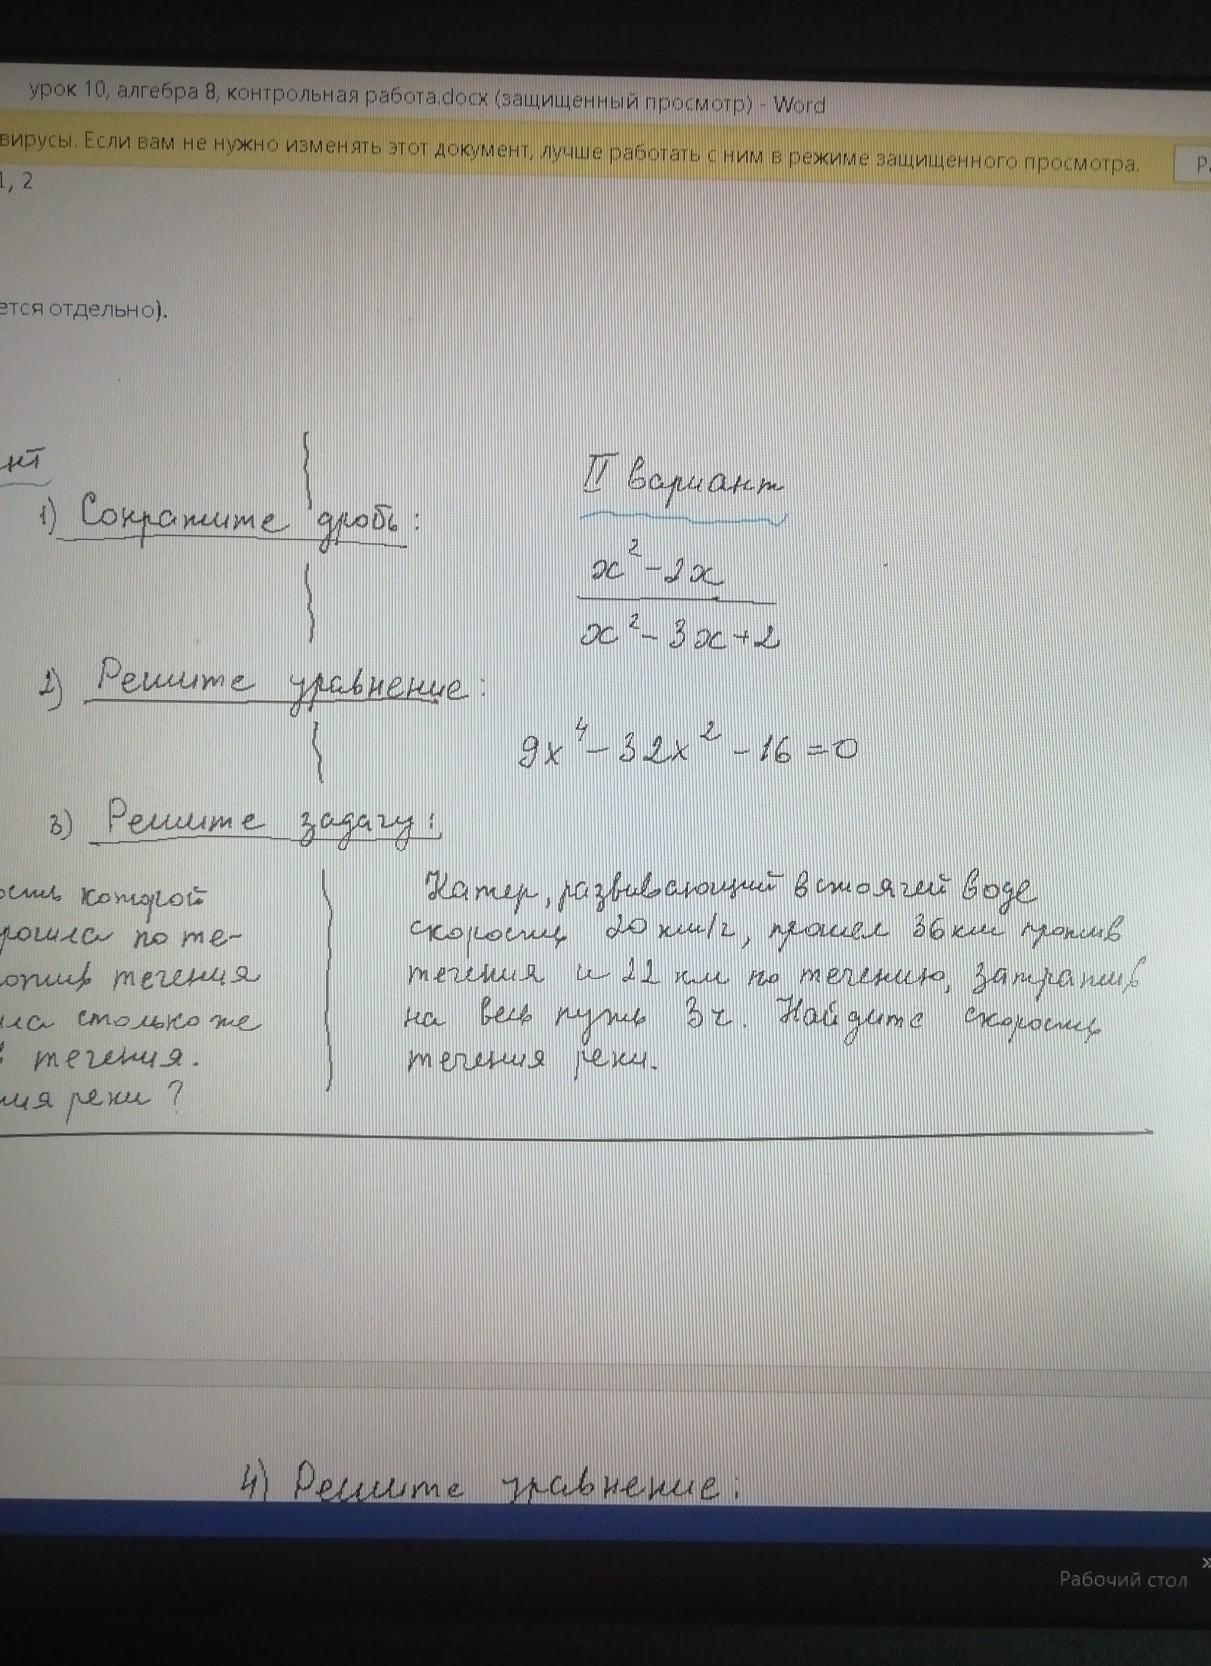 урок 10, алгебра 8, контрольная работа.docx (защищенный просмотр) - Word
вирусы. Если вам не нужно изменять этот документ, лучше работать с ним в режиме защищенного просмотра.
1, 2
ется отдельно).
нт
II вариант
1) Сократите дробь:
x² - 2x
x² - 3x + 2
2) Решите уравнение:
9x⁴ - 32x² - 16 = 0
3) Решите задачу:
ость которой
рошла по те-
отив течения
ла столько же
в течения.
ия реки?
Катер, развивающий в стоячей воде
скорость 20 км/ч, прошел 36 км против
течения и 22 км по течению, затратив
на весь путь 3ч. Найдите скорость
течения реки.
4) Решите уравнение:
Рабочий стол
»